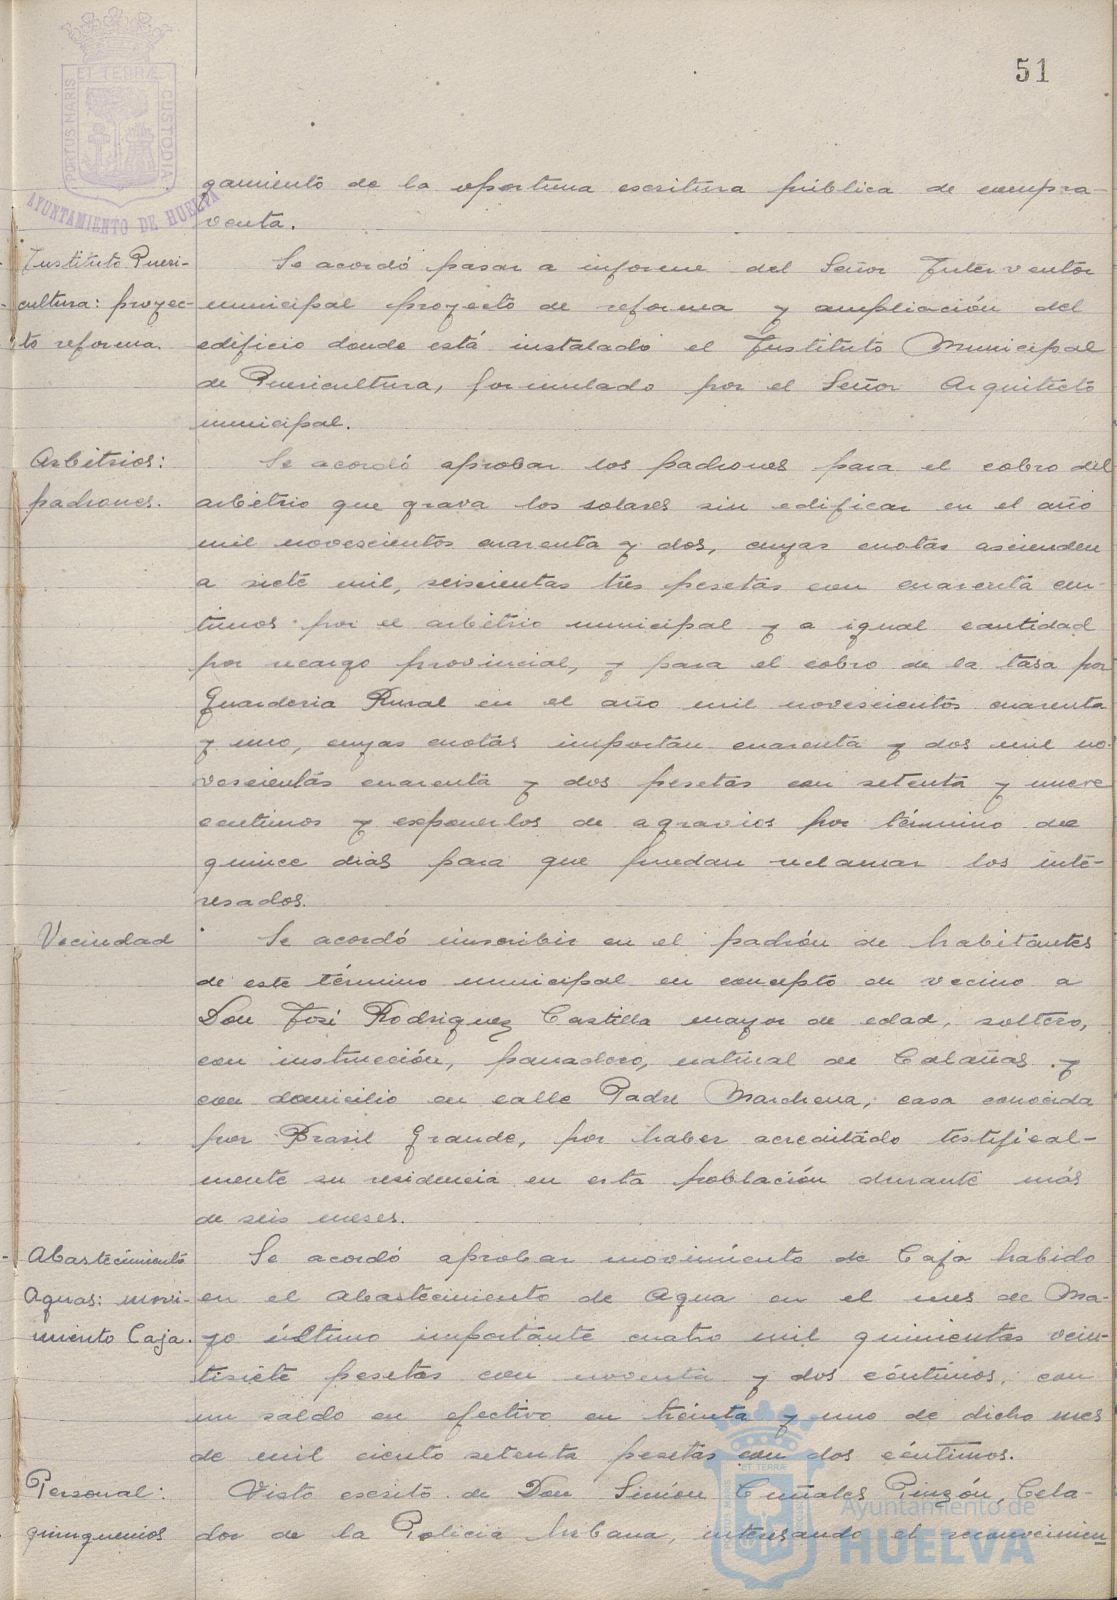 51
PORTUS MARIS ET TERRÆ CUSTODIA
AYUNTAMIENTO DE HUELVA
gamiento de la oportuna escritura pública de compra-
venta.
Instituto Pueri-
cultura: proyec-
to reforma.
Se acordó pasar a informe del Señor Interventor
municipal proyecto de reforma y ampliación del
edificio donde está instalado el Instituto Municipal
de Puericultura, formulado por el Señor Arquitecto
municipal.
Arbitrios:
padrones.
Se acordó aprobar los padrones para el cobro del
arbitrio que grava los solares sin edificar en el año
mil novescientos cuarenta y dos, cuyas cuotas ascienden
a siete mil, seiscientas tres pesetas con cuarenta cén-
timos por el arbitrio municipal y a igual cantidad
por recargo provincial, y para el cobro de la tasa por
Guardería Rural en el año mil novescientos cuarenta
y uno, cuyas cuotas importan cuarenta y dos mil no-
vescientas cuarenta y dos pesetas con setenta y nueve
centimos y exponerlos de agravios por término de
quince dias para que puedan reclamar los inte-
resados.
Vecindad
Se acordó inscribir en el padrón de habitantes
de este término municipal en concepto de vecino a
Don José Rodriguez Castilla mayor de edad, soltero,
con instrucción, panadero, natural de Calañas y
con domicilio en calle Padre Marchena, casa conocida
por Brasil Grande, por haber acreditado testifical-
mente su residencia en esta población durante más
de seis meses.
Abastecimiento
Aguas: movi-
miento Caja.
Se acordó aprobar movimiento de Caja habido
en el Abastecimiento de Agua en el mes de Ma-
yo último importante cuatro mil quinientas vein-
tisiete pesetas con noventa y dos céntimos, con
un saldo en efectivo en treinta y uno de dicho mes
de mil ciento setenta pesetas con dos céntimos.
Personal:
quinquenios
Visto escrito de Don Simón Cuñales Pinzón, Cela-
dor de la Policia Urbana, interesando el reconocimien
Ayuntamiento de
HUELVA